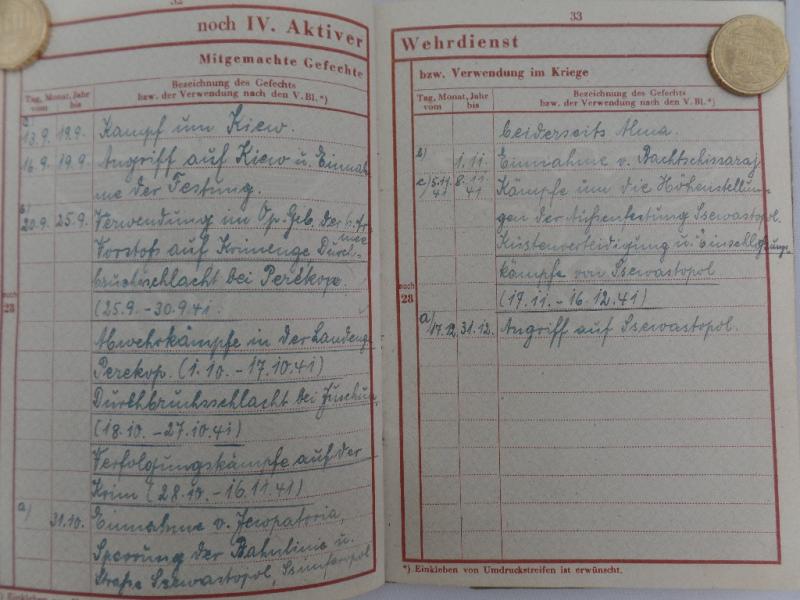 32
noch IV. Aktiver
Mitgemachte Gefechte
Tag, Monat, Jahr
vom bis
Bezeichnung des Gefechts
bzw. der Verwendung nach den V. Bl.*)
a)
13.9. 19.9. Kampf um Kiew.
16.9. 19.9. Angriff auf Kiew u. Einnah
me der Festung.
b)
20.9. 25.9. Verwendung im Op. Geb. der 6. Ar
mee
Vorstoß auf Krimenge, Durch-
bruchsschlacht bei Perekop.
(25.9. – 30.9.41.
noch
28
Abwehrkämpfe in der Landeng
Perekop. (1.10. – 17.10.41)
Durchbruchsschlacht bei Juschun
(18.10. – 27.10.41)
Verfolgungskämpfe auf der
Krim (28.10. – 16.11.41)
a) 31.10. Einnahme v. Jewpatoria,
Sperrung der Bahnlinie u.
Straße Ssewastopol, Ssimferopol
*) Einkleben
33
Wehrdienst
bzw. Verwendung im Kriege
Tag, Monat, Jahr
vom bis
Bezeichnung des Gefechts
bzw. der Verwendung nach den V. Bl.*)
beiderseits Alma.
b) 1.11. Einnahme v. Bachtschissaraj
c) 5.11.41 8.11.41 Kämpfe um die Höhenstellun-
gen der Außenfestung Ssewastopol.
Küstenverteidigung u. Einschließungs-
kämpfe von Ssewastopol
noch
28
(17.11. – 16.12.41)
a) 17.12. 31.12. Angriff auf Ssewastopol.
*) Einkleben von Umdruckstreifen ist erwünscht.